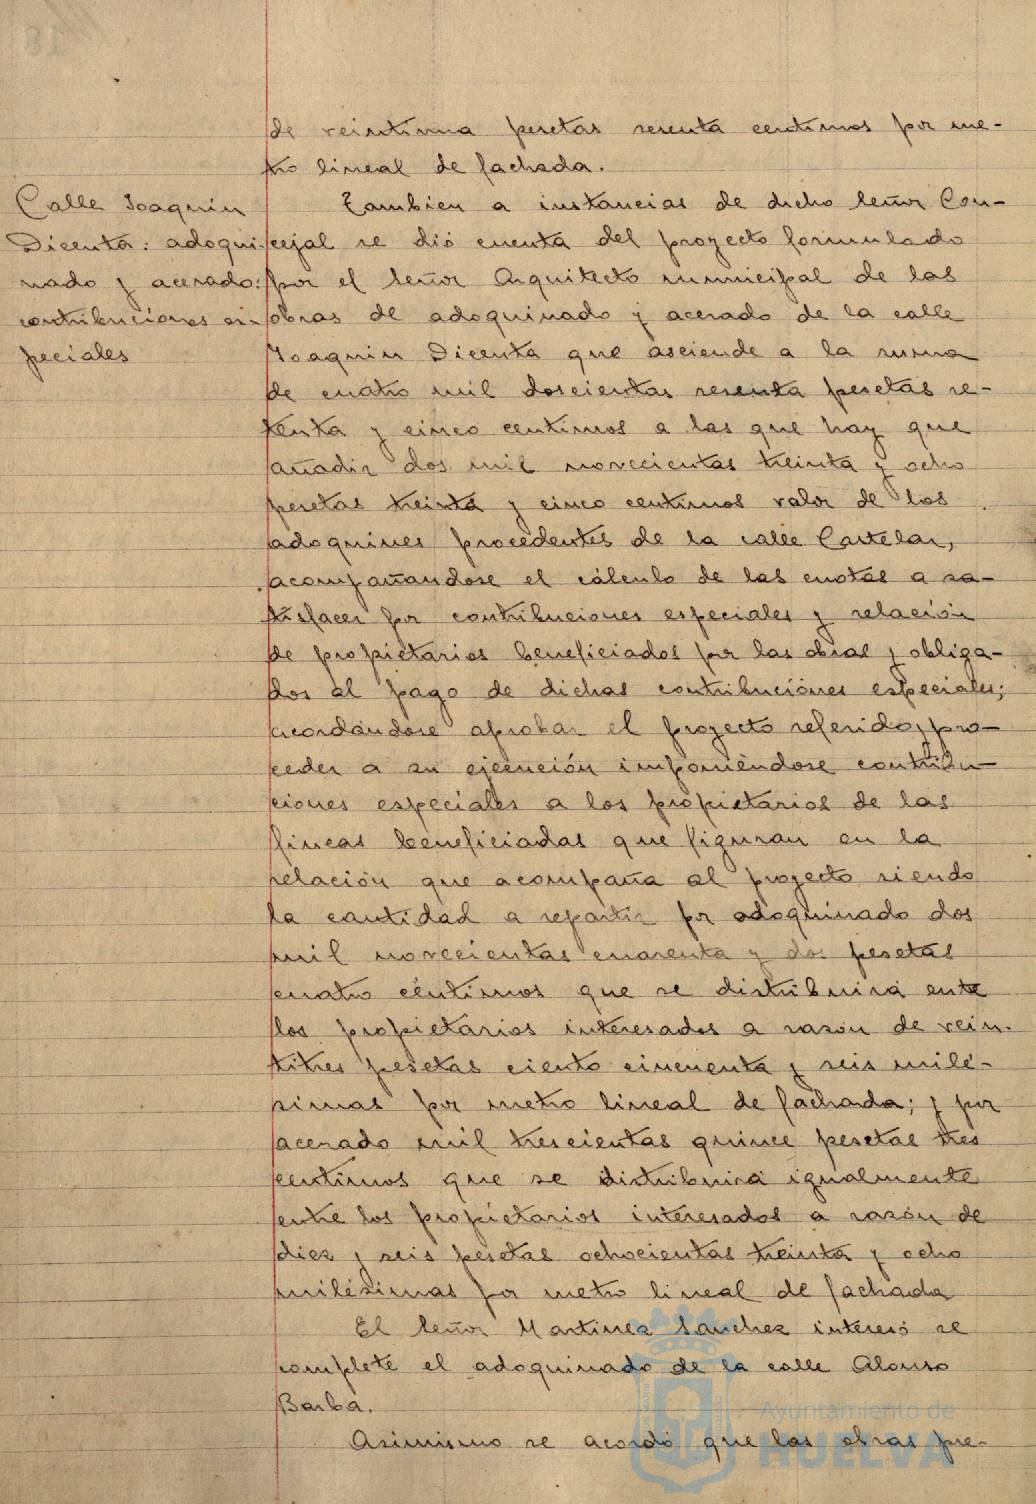 de veintiuna pesetas sesenta centimos por me-
tro lineal de fachada.
Calle Joaquin
Dicenta: adoqui-
nado y acerado:
contribuciones es-
peciales
Tambien a instancias de dicho Señor Con-
cejal se dió cuenta del proyecto formulado
por el Señor Arquitecto municipal de las
obras de adoquinado y acerado de la calle
Joaquin Dicenta que asciende a la suma
de cuatro mil doscientas sesenta pesetas se-
tenta y cinco centimos a las que hay que
añadir dos mil novecientas treinta y ocho
pesetas treinta y cinco centimos valor de los
adoquines procedentes de la calle Castelar,
acompañandose el cálculo de las cuotas a sa-
tisfacer por contribuciones especiales y relación
de propietarios beneficiados por las obras y obliga-
dos al pago de dichas contribuciones especiales;
acordándose aprobar el proyecto referido, pro-
ceder a su ejecución imponiéndose contribu-
ciones especiales a los propietarios de las
fincas beneficiadas que figuran en la
relación que acompaña al proyecto siendo
la cantidad a repartir por adoquinado dos
mil novecientas cuarenta y dos pesetas
cuatro céntimos que se distribuirá ente
los propietarios interesados a razón de vein-
titres pesetas ciento cincuenta y seis milé-
simas por metro lineal de fachada; y por
acerado mil trescientas quince pesetas tres
centimos que se distribuirá igualmente
entre los propietarios interesados a razón de
diez y seis pesetas ochocientas treinta y ocho
milésimas por metro lineal de fachada
El Señor Martinez Sanchez interesó se
complete el adoquinado de la calle Alonso
Barba.
Asimismo se acordó que las obras pre-
Ayuntamiento de
HUELVA